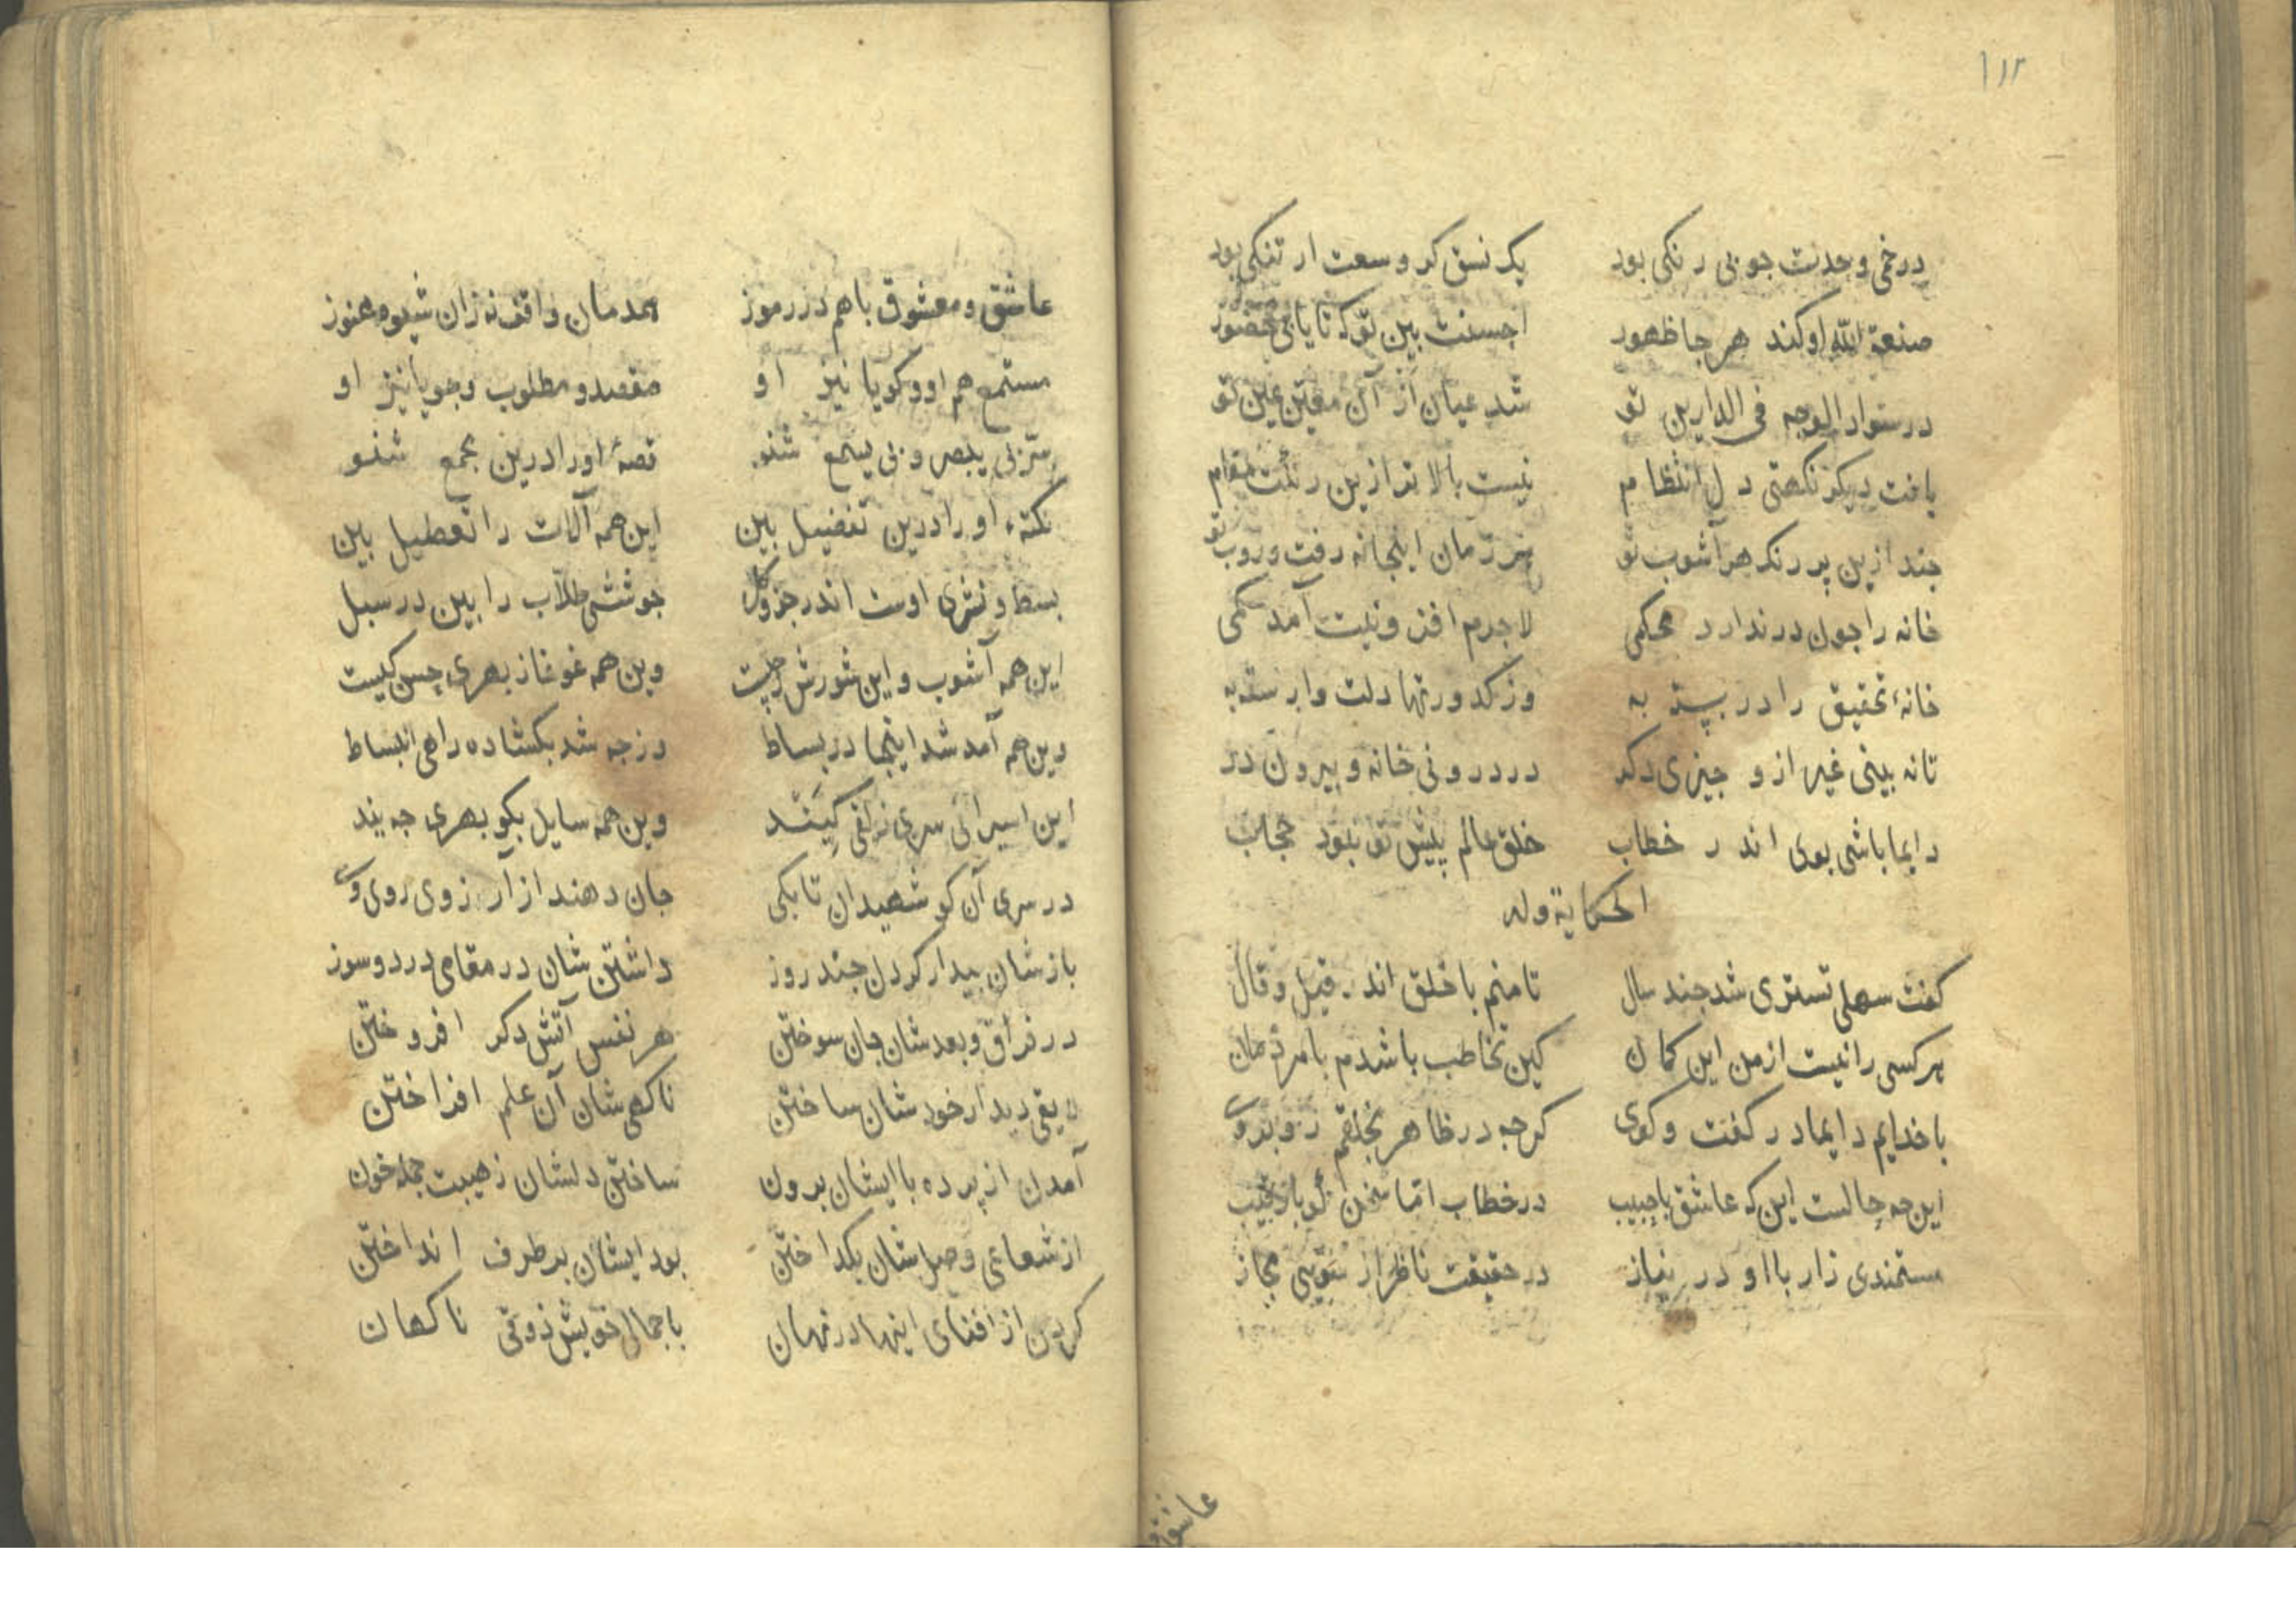 ۱۱۲
درخمی وحدت جو بی رنکی بود یک نسق کر وسعت ار تنکی بود
صنعة الله او کند هر جا ظهور احسنت بین تو که تا یابی حضور
در سواد الوجه فی الدارین تو شد عیان از آن معین عین تو
یافت دیکر نکهتی دل انتظام نیست بالاتر ازین رنکت مقام
جند ازین پر رنک هر آشوب تو هر زمان اینجا نه رفت و روب تو
خانه را جون در ندارد محکمی لاجرم افزونیت آمد کمی
خانهٔ تحقیق را در بسته به وز کدورتها دلت وارسته به
تا نه بینی غیر از و جیزی دکر در درونی خانه و بیرون در
دایما باشی بوی اندر خطاب خلق عالم پیش تو نبود حجاب
الحکایة وله
کفت سهلی تستری شد جند سال تا منم با خلق اندر قیل و قال
هر کسی را نیست از من این کمان کین تخاطب باشدم با مردمان
با خدایم دایما در کفت وکوی کرجه در ظاهر بخلقم رو بروی
این جه حالست این که عاشق با حبیب در خطاب اما سخن کو با رقیب
مستمندی زار با او در نیاز در حقیقت ناظر از سویی مجاز
عاشق و
عاشق و معشوق باهم در رموز همدمان واقف نه زان شیوه هنوز
مستمع هم او و کویا نیز او مقصد و مطلوب و جویا نیز او
سر بی یبصر و بی یسمع شنو قصهٔ او را درین مجمع شنو
نکتهٔ او را درین تفضیل بین این همه آلات را تعطیل بین
بسط و نشری اوست اندر جزو و کل جوششی طلاب را بین در سبل
این همه آشوب و این شورش ز چیست وین همه غوغا ز بهری حسن کیست
وین همه آمد شد اینجا در بساط در جه شد بکشاده راهی انبساط
این اسیرانی سری زلفی کیند وین همه سایل بکو بهری جه یند
در سری آن کو شهیدان تا بکی جان دهند از آرزوی روی وی
بازشان بیدار کردن جند روز داشتن شان در مقامی درد و سوز
در فراق و بعد شان جان سوختن هر نفس آتش دکر افروختن
لایقی دیدار خود شان ساختن ناکهی شان آن علم افراختن
آمدن از پرده با ایشان برون ساختن دلشان ز هیبت جمله خون
از شعاعی وصل شان بکداختن بود ایشان بر طرف انداختن
کردن از افنای اینها در نهان با جمالی خویش ذوقی ناکهان